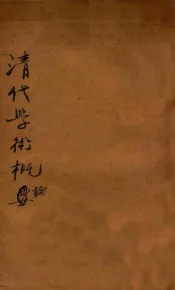 清代學術概論